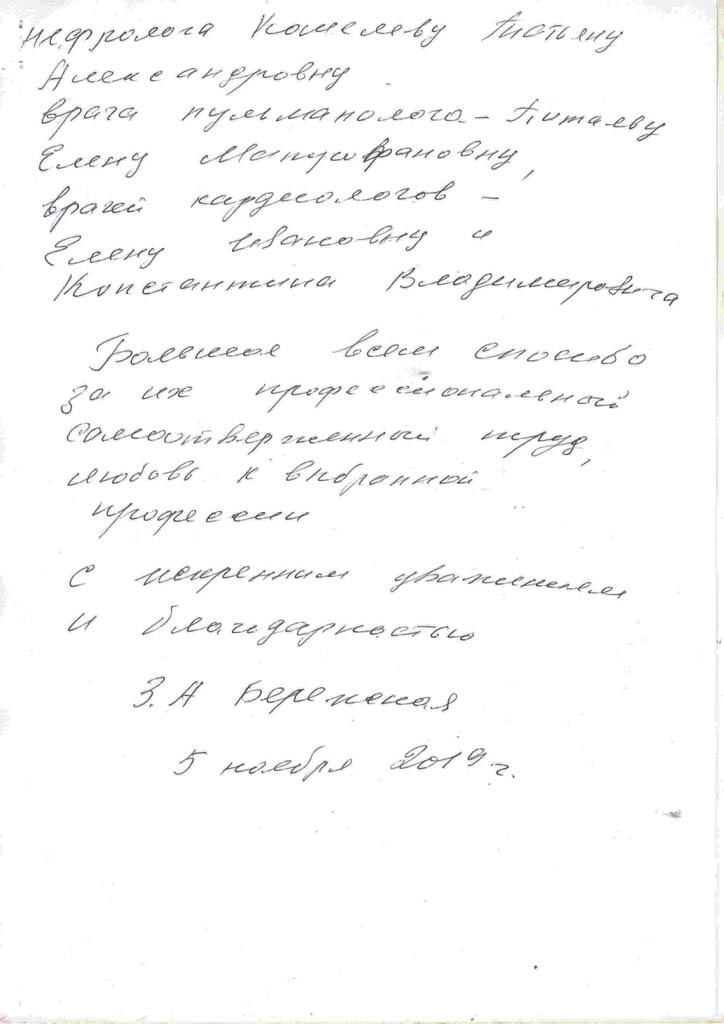 нефролога Кошелеву Татьяну
Александровну
врача пульманолога –
Елену
врачей кардеологов –
Елену Ивановну и
Константина Владимировича
Большое всем спасибо
за их профессиональный
самоотверженный труд,
любовь к выбранной
профессии
С искренним уважением
и благодарностью
З.А
5 ноября 2019 г.